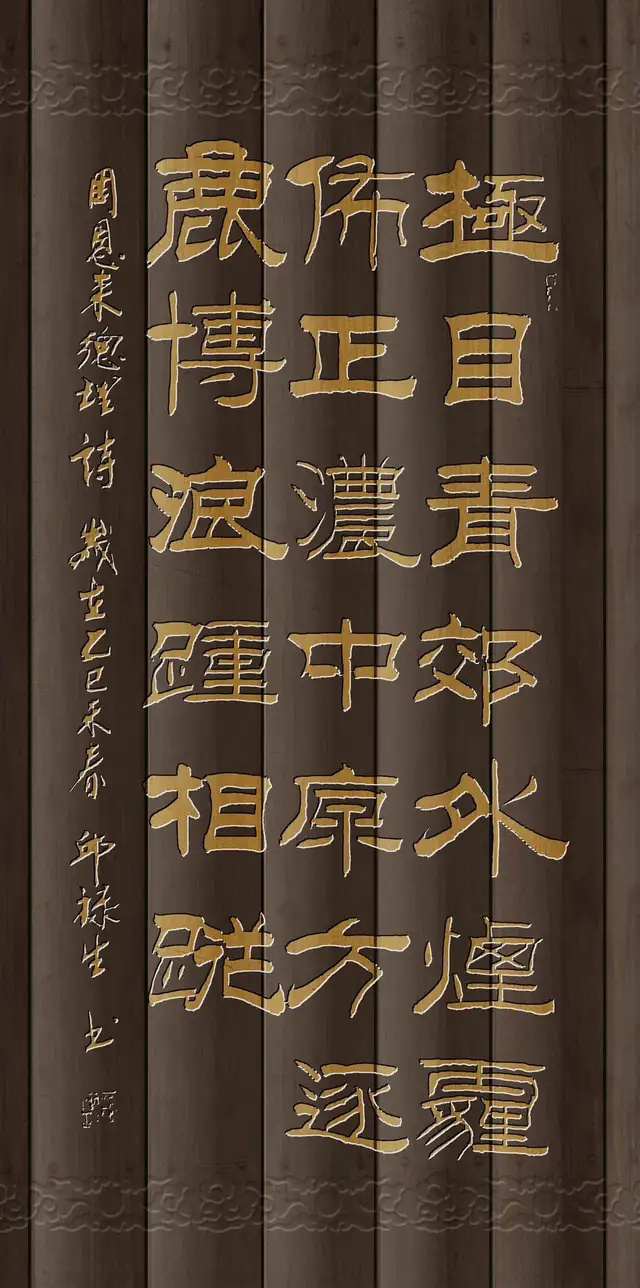 極目青郊外煙霾
佈正濃中原方逐
鹿博浪踵相蹤
周恩来總理詩 歲在乙巳末春 邱禄生 书